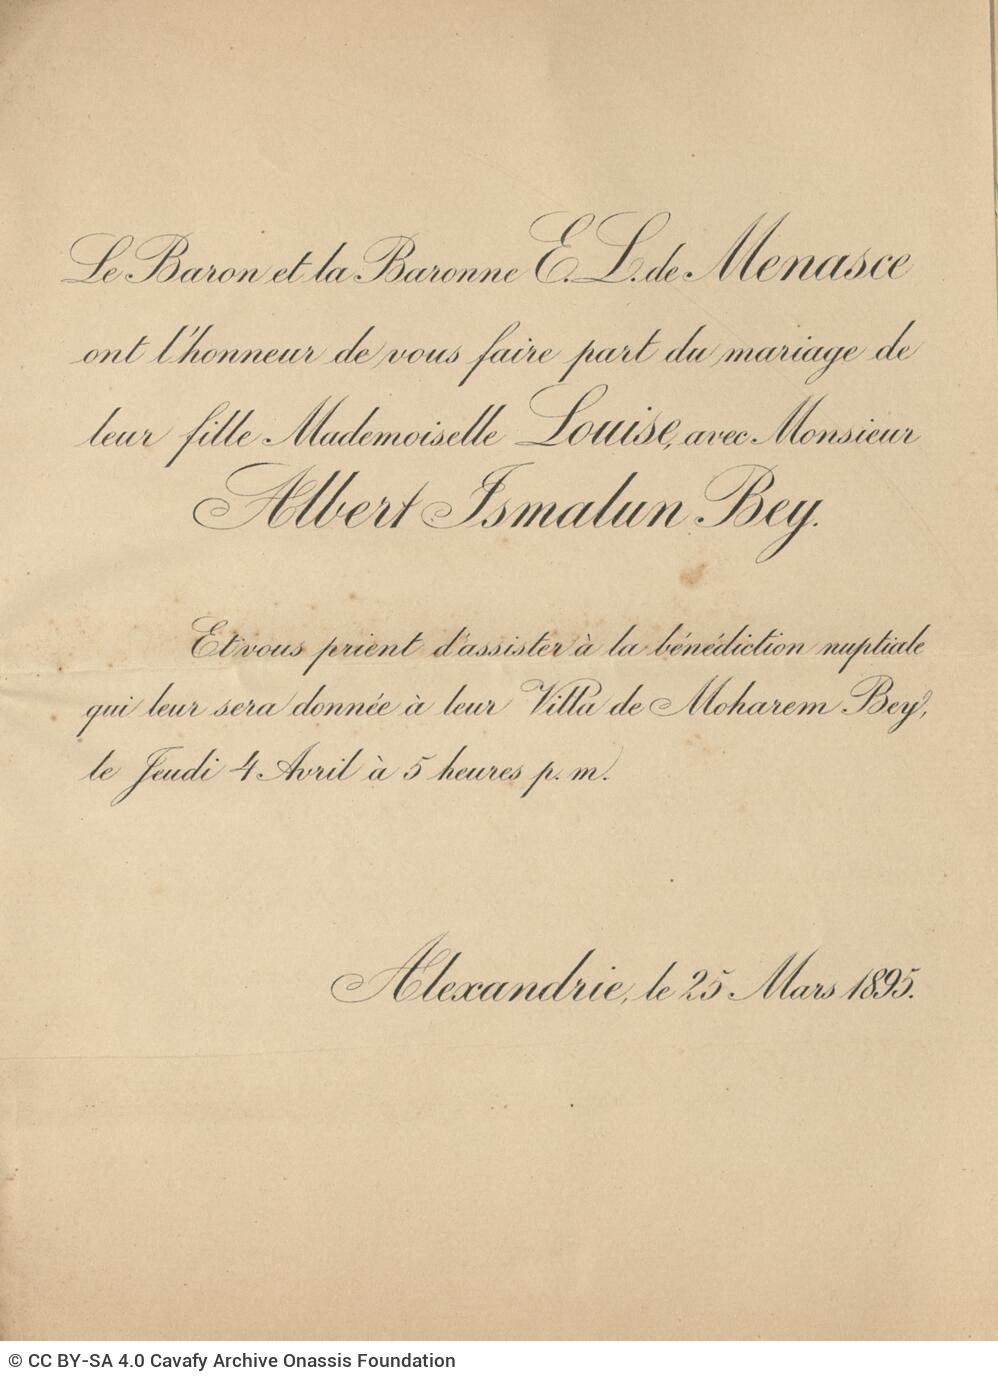 Le Baron et la Baronne E. L. de Menasce
ont l'honneur de vous faire part du mariage de
leur fille Mademoiselle Louise, avec Monsieur
Albert Ismalun Bey.
Et vous prient d'assister à la bénédiction nuptiale
qui leur sera donnée à leur Villa de Moharem Bey,
le Jeudi 4 Avril à 5 heures p. m.
Alexandrie, le 25 Mars 1895.
© CC BY-SA 4.0 Cavafy Archive Onassis Foundation